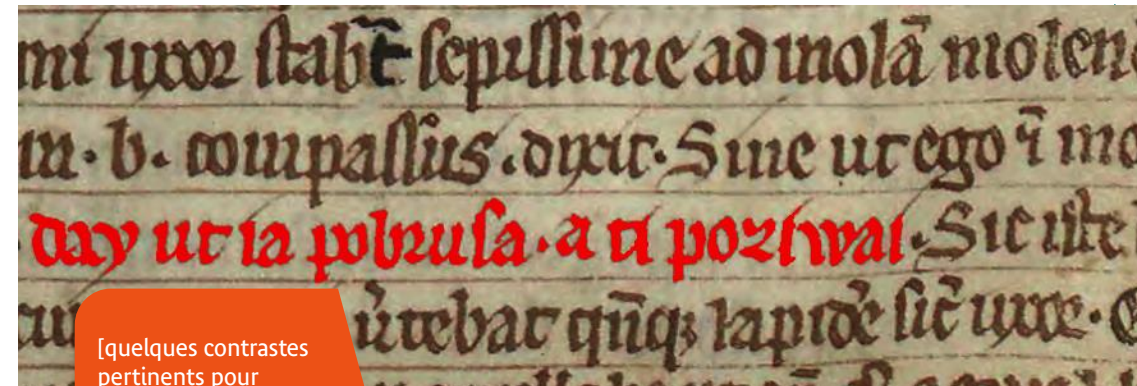 mi uxor stabat̄ sepissime ad molā molen
m · b · compassus · dixit · Sine ut ego ī mo
day ut ia pobrusa · a ti poziwai · Sic iste
ut̄ebat qn̄qꝫ lapidē sic̄ uxor ·
[quelques contrastes
pertinents pour